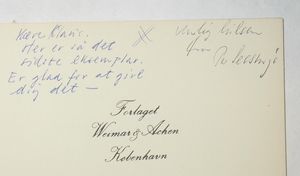 Kære
Her er så det
sidste eksemplar.
Er glad for at give
dig det —
venlig hilsen
Forlaget
Weimar & Achen
København